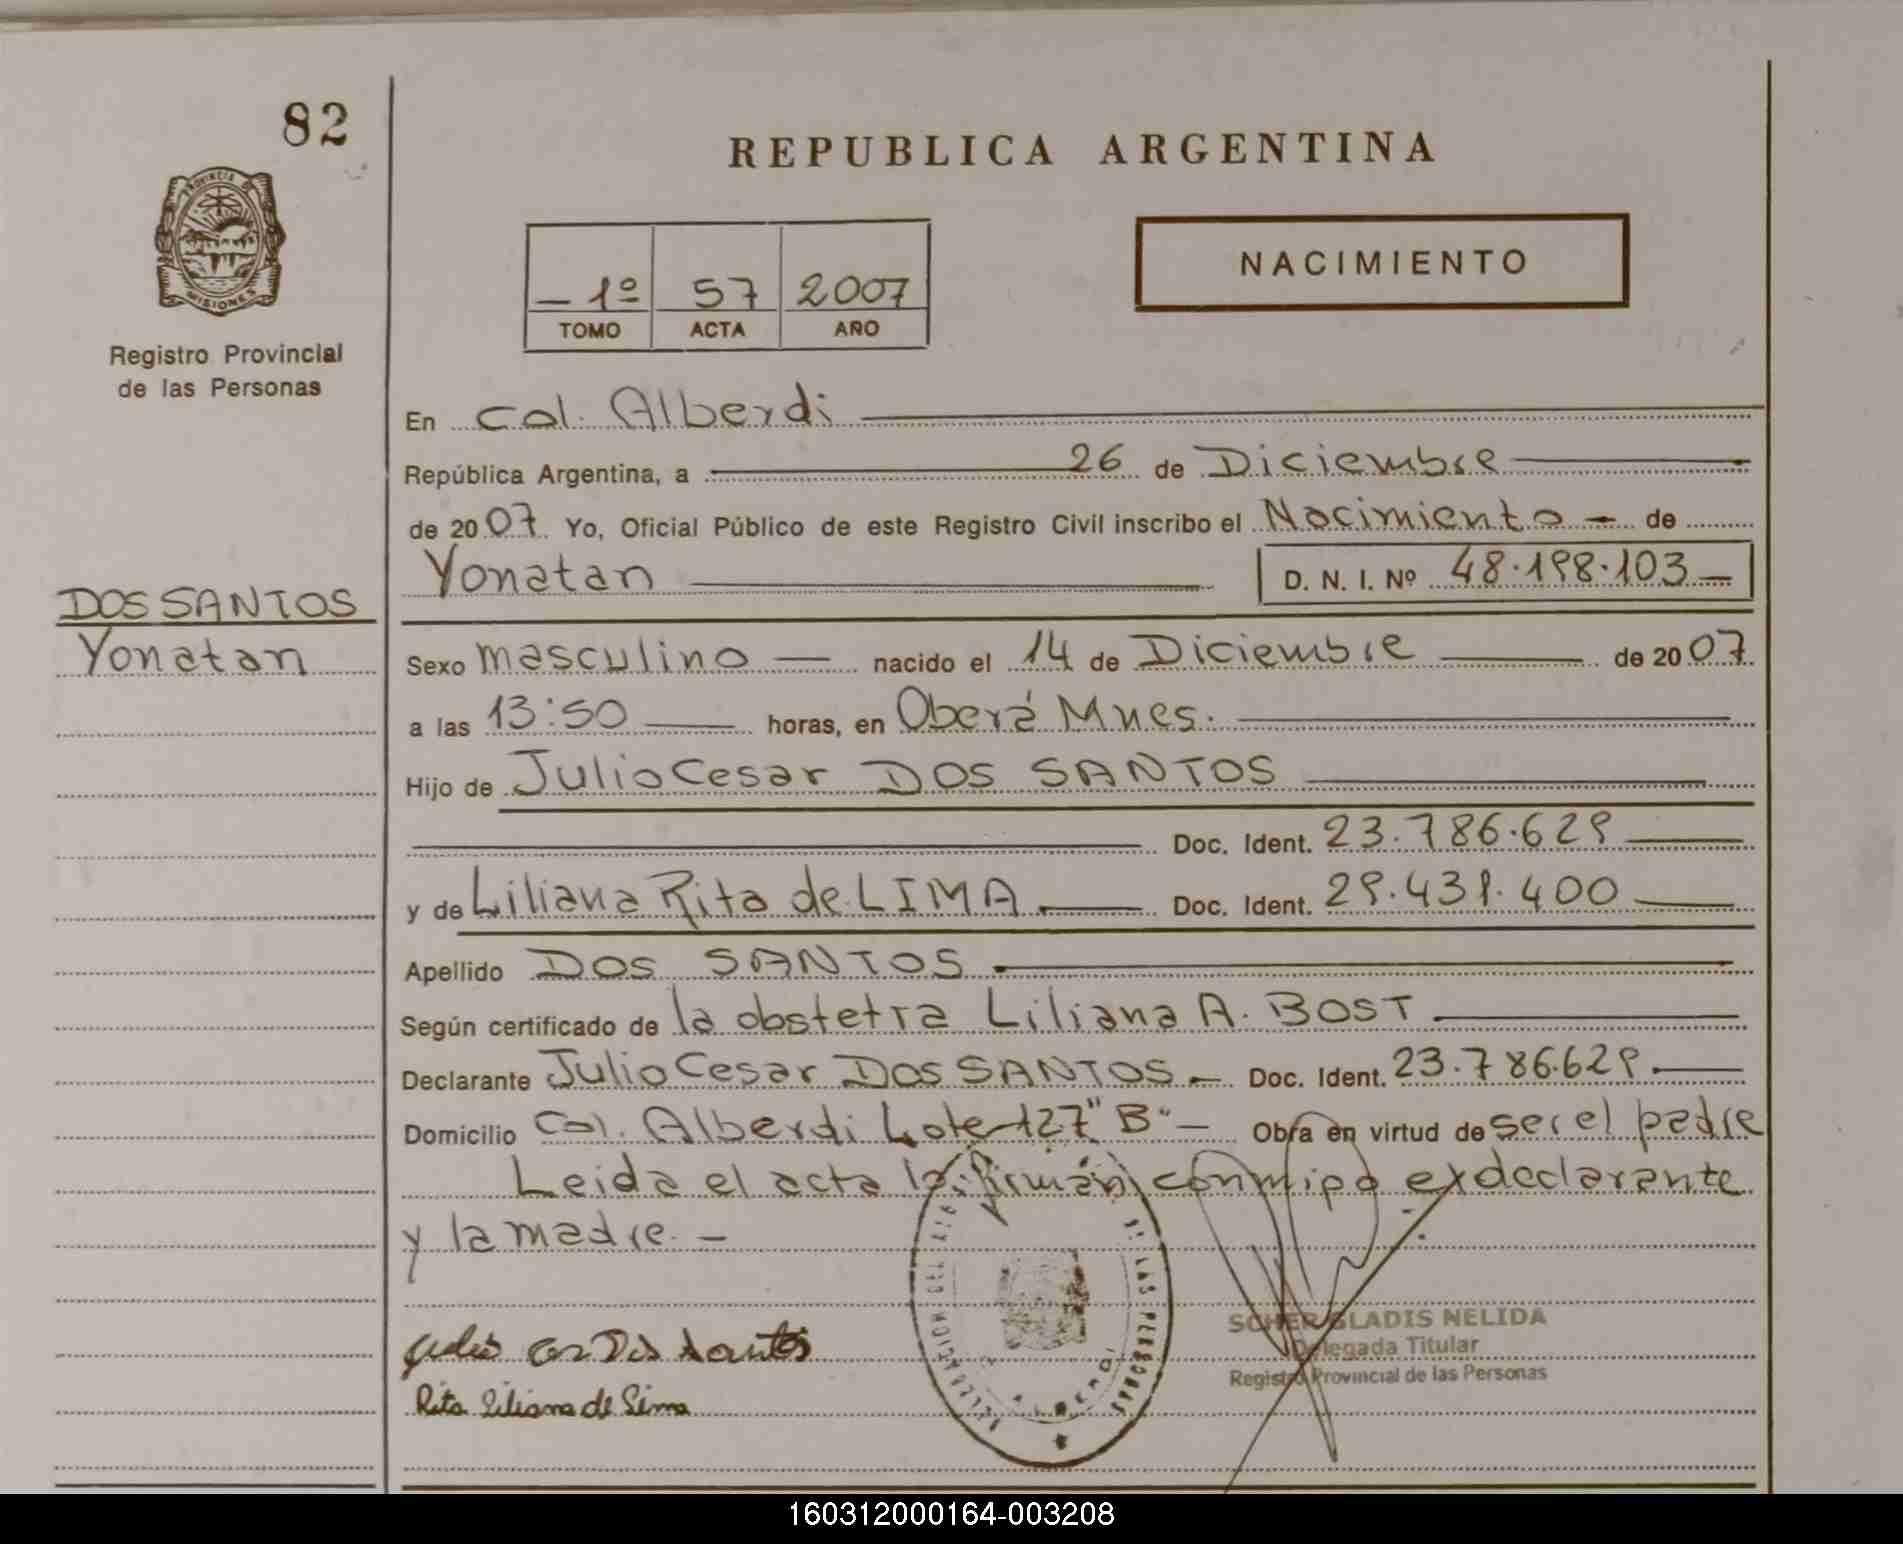 82
REPUBLICA ARGENTINA
PROVINCIA DE
MISIONES
Registro Provincial
de las Personas
1º 57 2007
TOMO ACTA AÑO
NACIMIENTO
En Col. Alberdi
República Argentina, a 26 de Diciembre
de 2007 Yo, Oficial Público de este Registro Civil inscribo el Nacimiento - de
Yonatan D. N. I. Nº 48.198.103
DOS SANTOS
Yonatan
Sexo masculino nacido el 14 de Diciembre de 2007
a las 13:50 horas, en Oberá Mnes.
Hijo de Julio Cesar DOS SANTOS
Doc. Ident. 23.786.629
y de Liliana Rita de LIMA Doc. Ident. 29.431.400
Apellido DOS SANTOS
Según certificado de la obstetra Liliana A. BOST
Declarante Julio Cesar DOS SANTOS - Doc. Ident. 23.786.629
Domicilio Col. Alberdi Lote 127 "B" - Obra en virtud de ser el padre
Leida el acta la firman conmigo el declarante
y la madre. -
DE LAS PERSONAS
ALBERDI
SCHER GLADIS NELIDA
Delegada Titular
Registro Provincial de las Personas
Julio Cesar Dos Santos
Rita Liliana de Lima
160312000164-003208